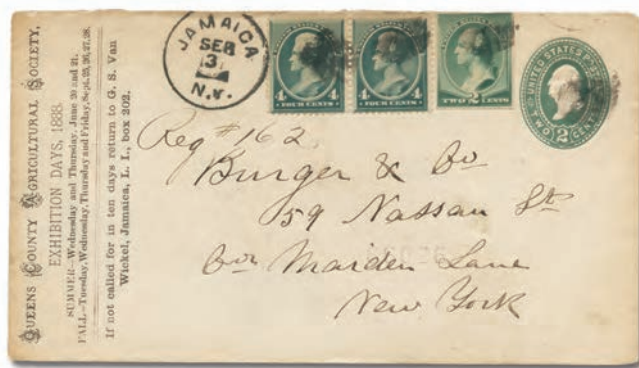 QUEENS COUNTY AGRICULTURAL SOCIETY,
EXHIBITION DAYS, 1888.
SUMMER—Wednesday and Thursday, June 20 and 21.
FALL—Tuesday, Wednesday, Thursday and Friday, Sept. 25, 26, 27, 28.
If not called for in ten days return to G. S. Van
Wickel, Jamaica, L. I., box 202.
JAMAICA
SEP
3
N.Y.
4 4
FOUR CENTS
4 4
FOUR CENTS
TWO 2 CENTS
UNITED STATES
TWO 2 CENTS
Reg # 162
Burger & Co
59 Nassau St
Cor Maiden Lane
New York